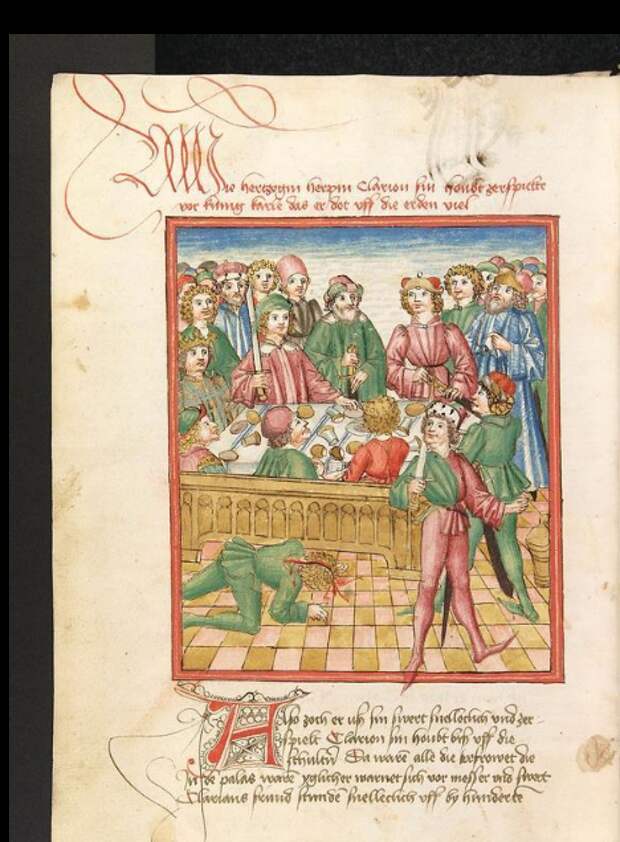 Wie hertzogin herpin Clarion sin houbt zerspielte
vor kunig karle das er dot vff die erden viel
Also zoch er uß sin swert snelleclich vnd zer-
spielt Clarion sin houbt biß vff die
schultern Da warē alle die
In de palas warē yglicher warnet sich vor messer vnd swert
Clarions frund stundē snelleclich vff by hundertē